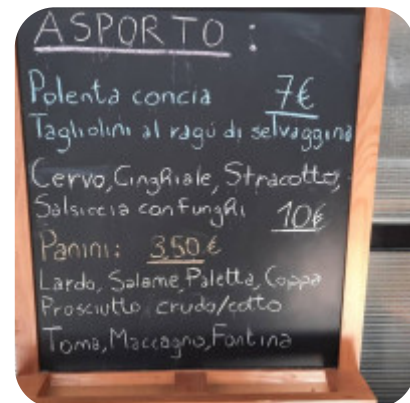 ASPORTO:
Polenta concia 7€
Tagliolini al ragú di selvaggina
Cervo, Cinghiale, Stracotto,
Salsiccia con Funghi 10€
Panini: 3,50 €
Lardo, Salame, Paletta, Coppa
Prosciutto crudo/cotto
Toma, Maccagno, Fontina